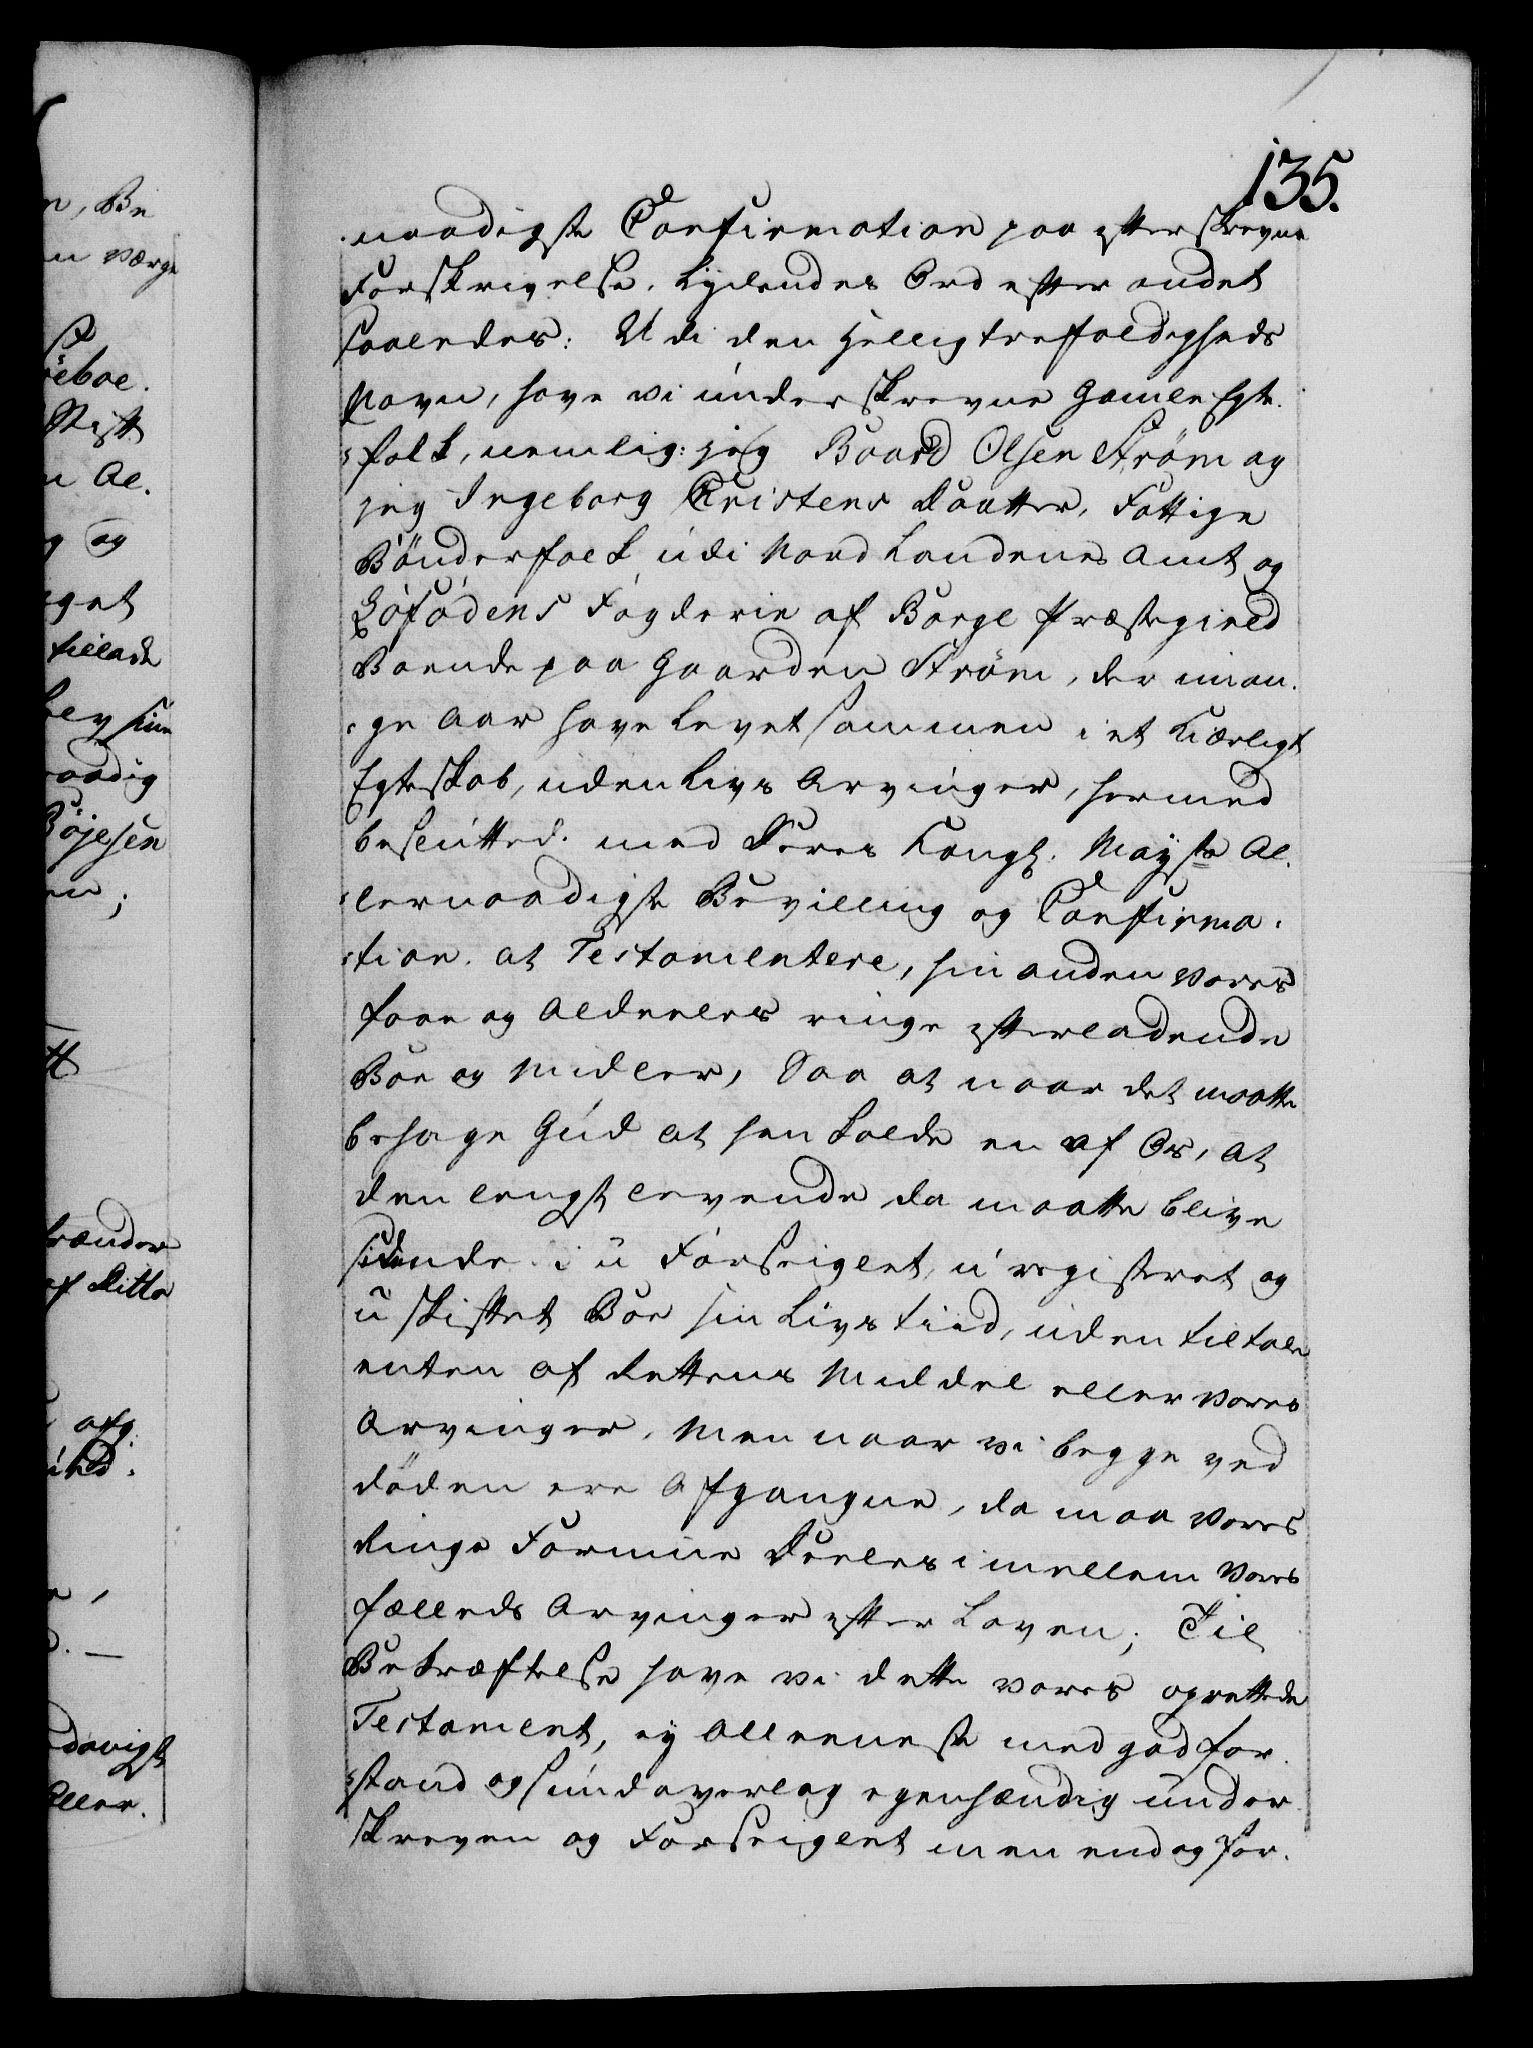 135.
naadigste Confirmation paa efterskrevne
Forskrivelse. Lydendes Ord efter andet
saaledes: Udi den Hellig trefoldigheds
Navn, have vi underskrevne Gamle Egte-
folk, nemlig: jeg Baard Olsen Strøm og
jeg Ingeborg Christens Daatter, Fattige
Bønderfolk udi Nordlandenes Amt og
Lófódens Fogderie af Borge Præstegield
Boende paa Gaarden Strøm, der i man-
ge Aar have Levet sammen i et Kiærligt
Egteskab, uden Livs Arvinger, hermed
besluttet med Deres Kongl. Mayst: Al-
lernaadigste Bevilling og Confirma-
tion. at Testamentere, hin anden vores
faae og Aldeeles ringe efterladende
Boe og Midler, Saa at naar det maatte
behage Gud at henkalde en af Os, at
den lengst levende da maatte blive
sidende i u Forseiglet, u registeret og
u skiftet Boe sin Livs tiid, uden tiltale
enten af Rettens Middel eller vores
Arvinger. Men naar vi begge ved
døden ere Afgangne, da maa vores
Ringe Formue Deeles imellem vores
fælleds Arvinger efter Loven; Til
Bekræftelse have vi dette vores oprettede
Testament, ey Alleeneste med god for-
stand og sund overlæg egenhændig under-
skreven og Forseiglet men endog for-
n, Be
n værge
öeboe.
Stift
n Al.
g og
get
tillade
ley sine
naadig
Böjesen
en;
trænder
af Ditto
afg.
ind.
davigst
Aller.